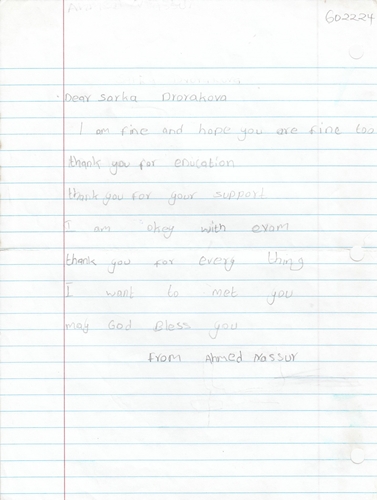 602224
Dear Sarka Drorakova
I am fine and hope you are fine too
thank you for enucation
thank you for your support
I am okey with exam
thank you for every thing
I want to met you
may God Bless you
from Ahmed Nassur